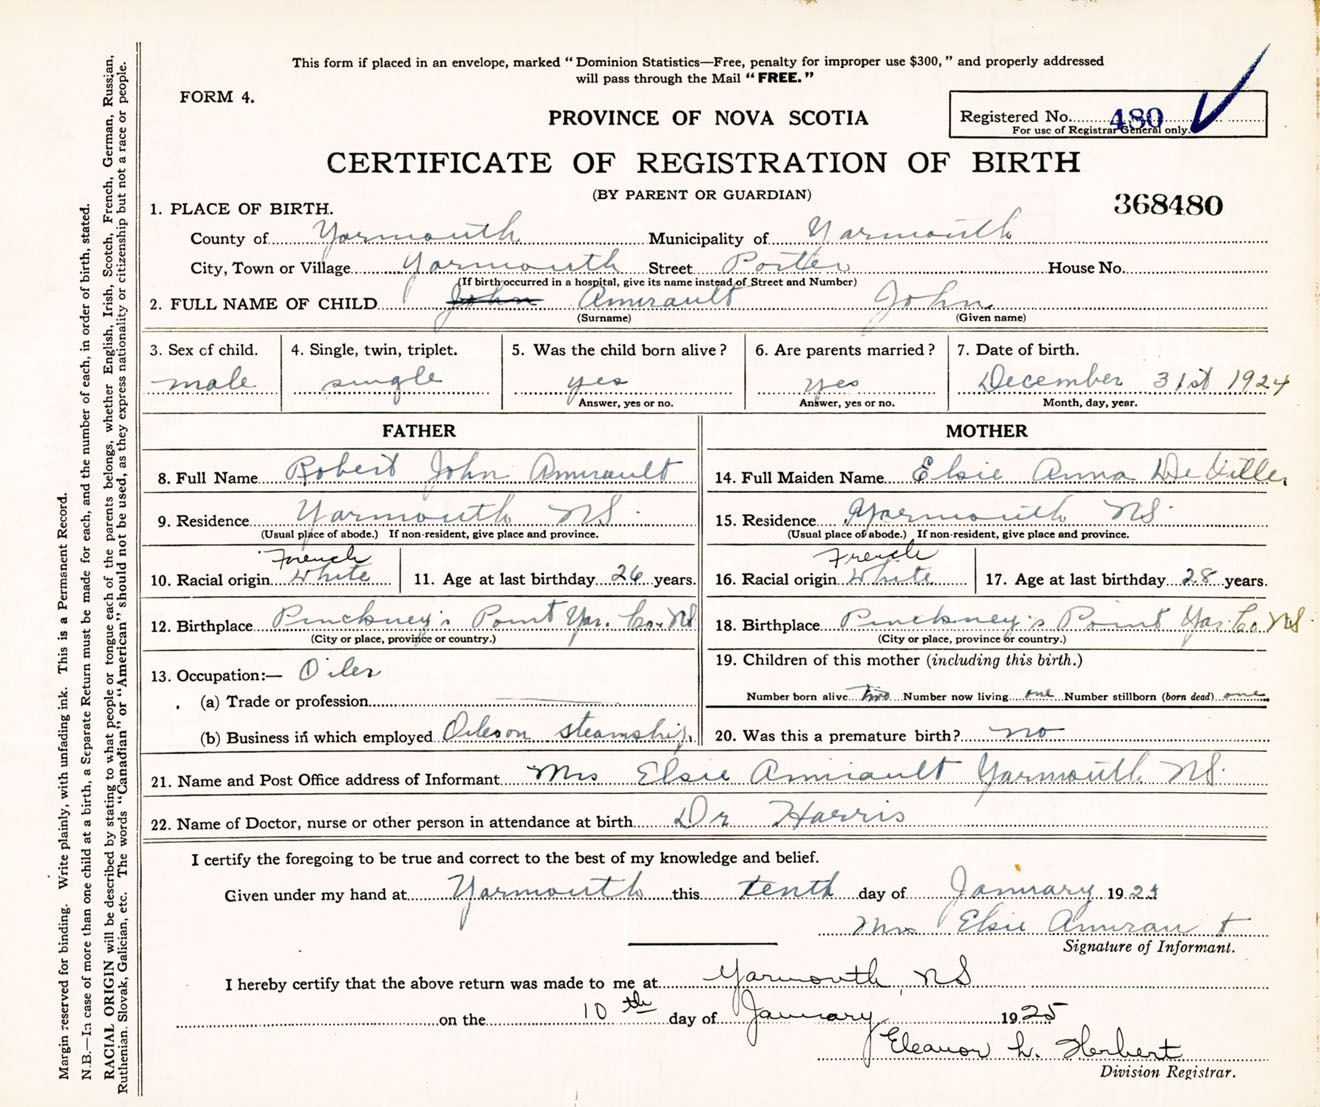 This form if placed in an envelope, marked "Dominion Statistics—Free, penalty for improper use $300," and properly addressed
will pass through the Mail "FREE."
FORM 4.
PROVINCE OF NOVA SCOTIA
Registered No. 480
For use of Registrar General only.
CERTIFICATE OF REGISTRATION OF BIRTH
(BY PARENT OR GUARDIAN)
368480
1. PLACE OF BIRTH.
County of Yarmouth Municipality of Yarmouth
City, Town or Village Yarmouth Street Porter House No.
(If birth occurred in a hospital, give its name instead of Street and Number)
2. FULL NAME OF CHILD John Amirault John
(Surname) (Given name)
3. Sex of child. 4. Single, twin, triplet. 5. Was the child born alive? 6. Are parents married? 7. Date of birth.
male single yes yes December 31st 1924
Answer, yes or no. Answer, yes or no. Month, day, year.
FATHER MOTHER
8. Full Name Robert John Amirault 14. Full Maiden Name Elsie Anna DeViller
9. Residence Yarmouth NS. 15. Residence Yarmouth NS.
(Usual place of abode.) If non-resident, give place and province. (Usual place of abode.) If non-resident, give place and province.
French French
10. Racial origin White 11. Age at last birthday 26 years. 16. Racial origin White 17. Age at last birthday 28 years.
12. Birthplace Pinckney's Point Yar. Co. NS 18. Birthplace Pinckney's Point Yar. Co. NS.
(City or place, province or country.) (City or place, province or country.)
13. Occupation:— Oiler 19. Children of this mother (including this birth.)
(a) Trade or profession Number born alive two Number now living one Number stillborn (born dead) one
(b) Business in which employed Oiler on steamship. 20. Was this a premature birth? no
21. Name and Post Office address of Informant Mrs Elsie Amirault Yarmouth NS.
22. Name of Doctor, nurse or other person in attendance at birth Dr Harris
I certify the foregoing to be true and correct to the best of my knowledge and belief.
Given under my hand at Yarmouth this tenth day of January 1925
Mrs Elsie Amirault
Signature of Informant.
I hereby certify that the above return was made to me at Yarmouth, NS
on the 10th day of January 1925
Eleanor L. Herbert
Division Registrar.
Margin reserved for binding. Write plainly, with unfading ink. This is a Permanent Record.
N.B.—In case of more than one child at a birth, a Separate Return must be made for each, and the number of each, in order of birth, stated.
RACIAL ORIGIN will be described by stating to what people or tongue each of the parents belongs, whether English, Irish, Scotch, French, German, Russian,
Ruthenian, Slovak, Galician, etc. The words "Canadian" or "American" should not be used, as they express nationality or citizenship but not a race or people.